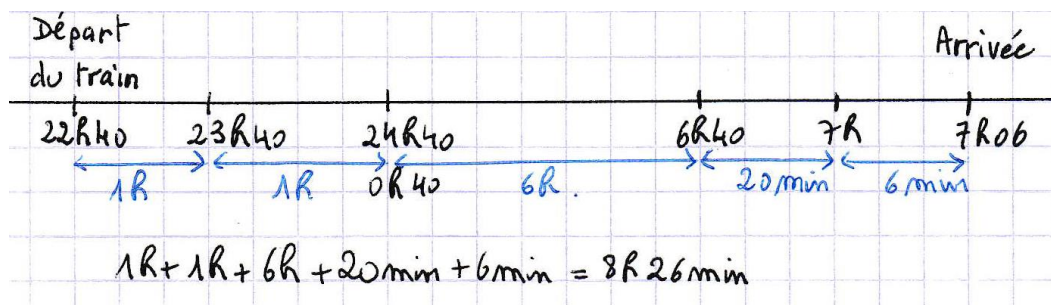 Départ
du train
Arrivée
22h40 23h40 24h40 6h40 7h 7h06
1h 1h 0h40 6h. 20min 6min
1h+1h+6h+20min+6min = 8h26min